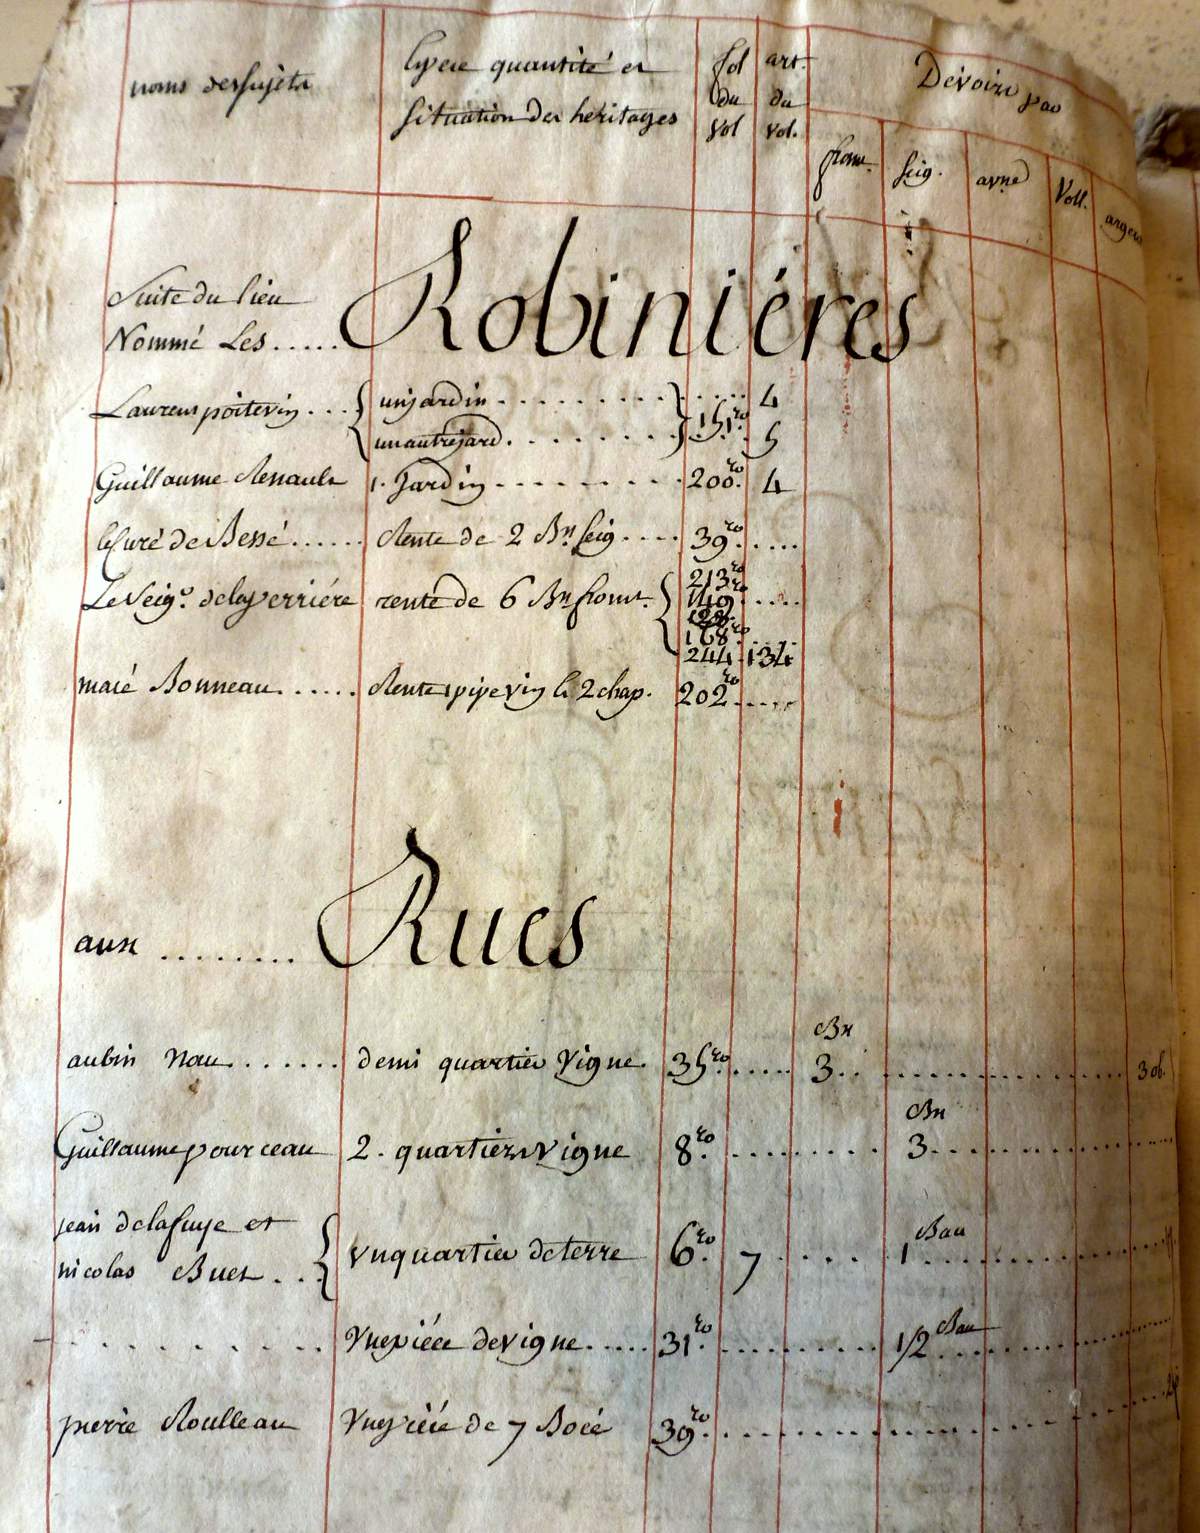 noms des sujéts
Espece quantité et
Situation des heritages
fol du Vol
art. du vol.
Dévoirs par
from. seig. avne Voll. argent
Suite du lieu
Nommé Les ..... Robiniéres
Laurens poitevin ... un jardin ......... 4
un autre jard. ........ 151.ro 5
Guillaume Renault 1. Jardin ........ 200.ro 4
le Curé de Bessé ...... Rente de 2 Bx seig .... 39.ro ....
Le Seigr. de la perriére rente de 6 Bx fromt. 213.ro
149.ro ....
168.ro ...
244 134
maté Bonneau ...... Rente 1 pipe vin & 2 chap. 202.ro .....
aux ........ Rues
aubin Nau ....... demi quartier Vigne. 35.ro ..... Bx 3 .. ............... 3 ob.
Guillaume pourceau 2. quartiers Vigne 8.ro ......... Bx 3 ...............
jean delafuye et
nicolas Buet ... Vn quartier de terre 6.ro 7 .... 1 Bau ...............
. . . . . . . . . Vne piéce de vigne ..... 31.ro .......... 1/2 Bau ...............
pierre Roulleau Vne piéce de 7 Bocé 39.ro ....................